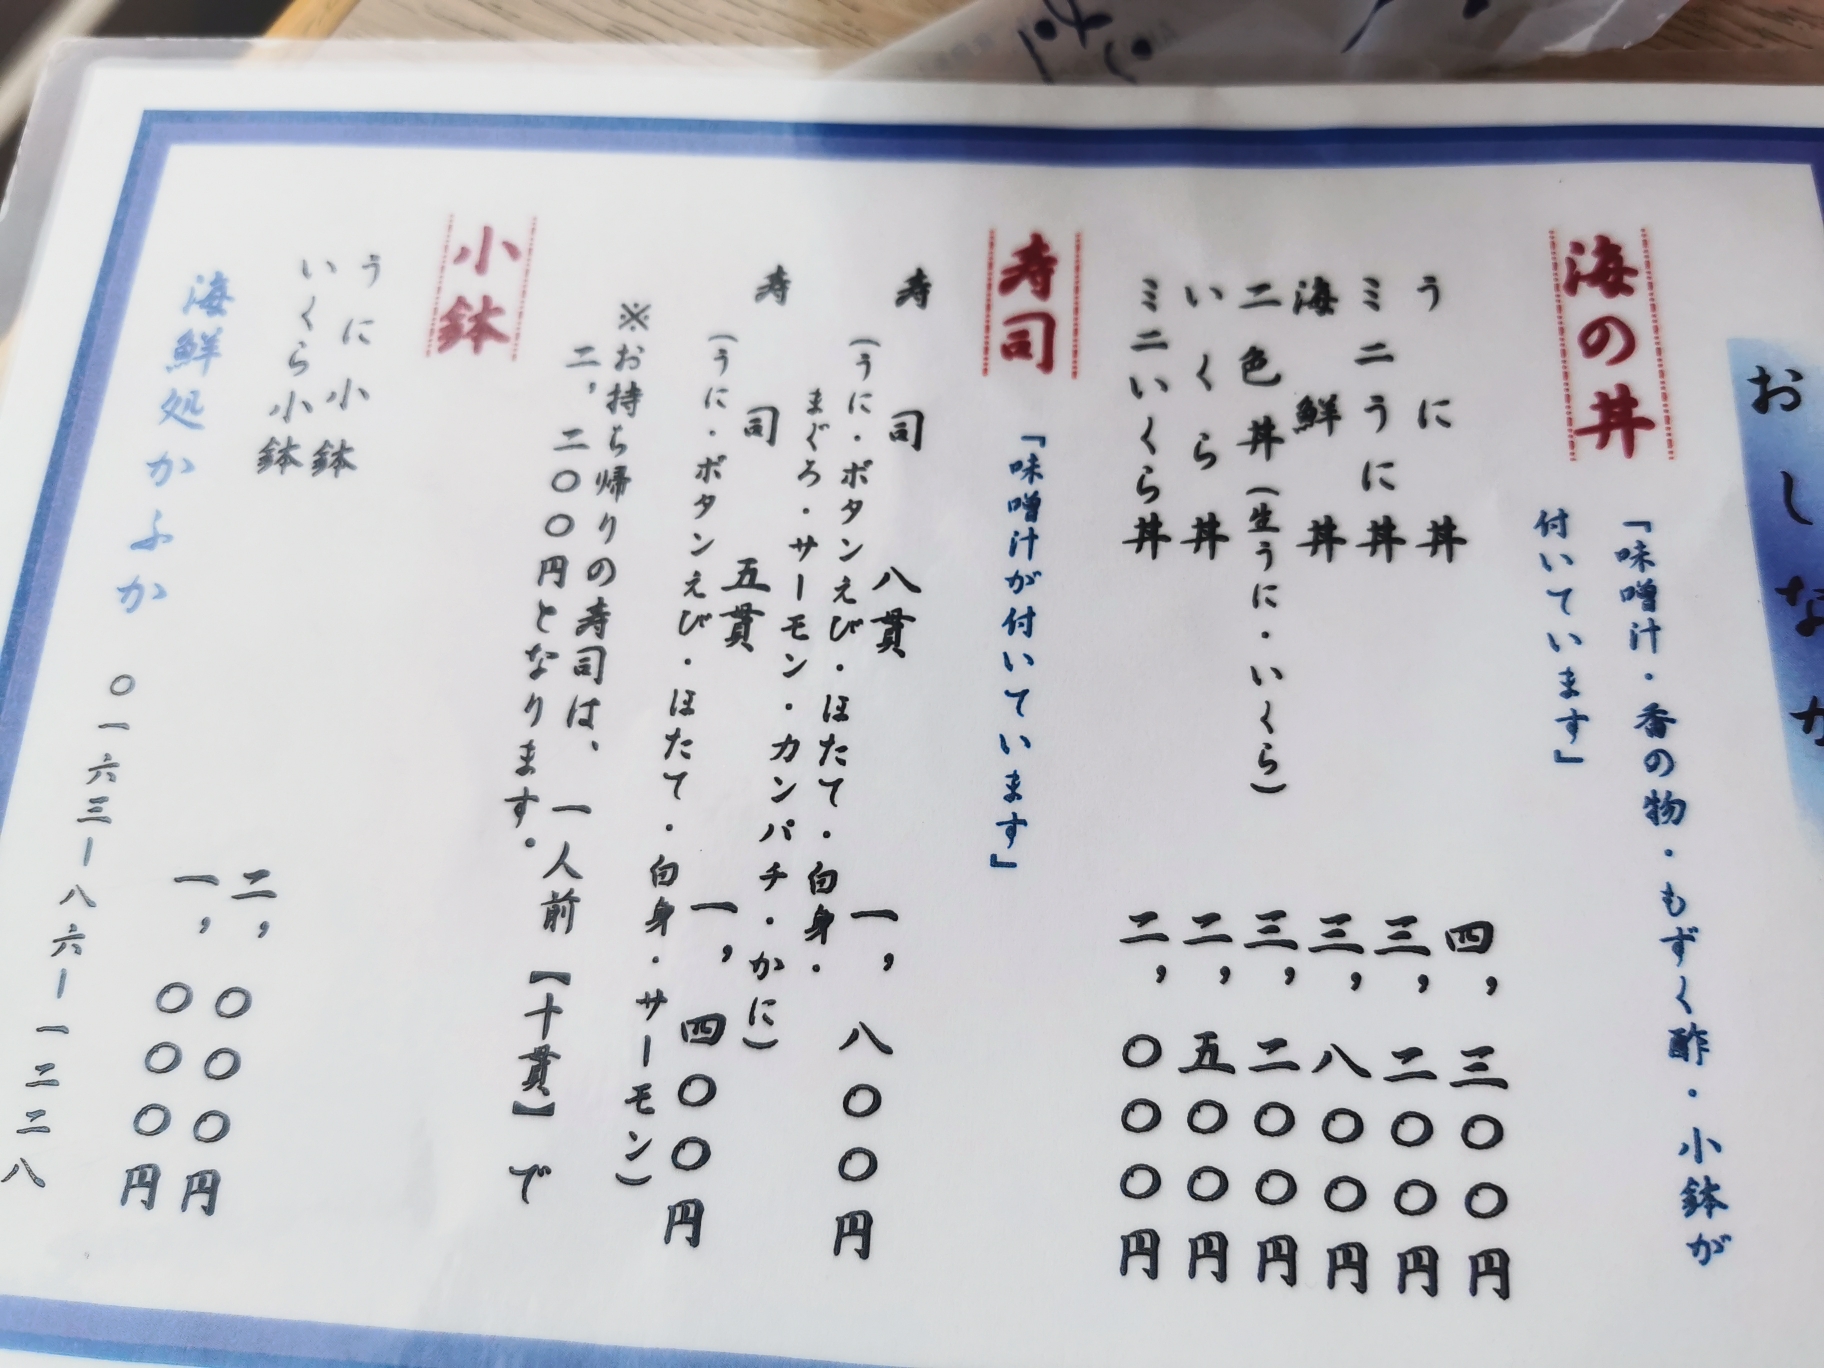 おしなが
海の丼
「味噌汁・香の物・もずく酢・小鉢が
付いています」
うに丼 四,三〇〇円
ミニうに丼 三,二〇〇円
海鮮丼 三,八〇〇円
二色丼(生うに・いくら) 三,二〇〇円
いくら丼 二,五〇〇円
ミニいくら丼 二,〇〇〇円
寿司
「味噌汁が付いています」
寿司 八貫 一,八〇〇円
(うに・ボタンえび・ほたて・白身・
まぐろ・サーモン・カンパチ・かに)
寿司 五貫 一,四〇〇円
(うに・ボタンえび・ほたて・白身・サーモン)
※お持ち帰りの寿司は、一人前【十貫】で
二,二〇〇円となります.
小鉢
うに小鉢 二,〇〇〇円
いくら小鉢 一,〇〇〇円
海鮮処かふか 〇一六三ー八六ー一二二八